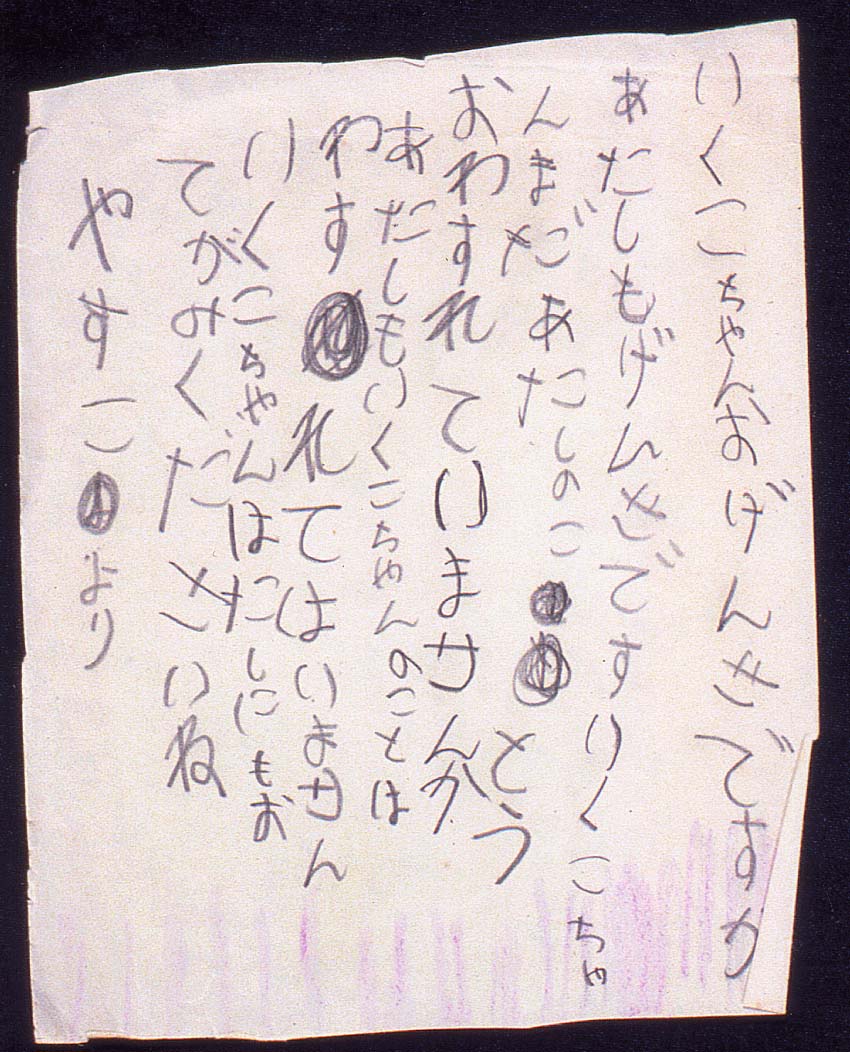 いくこちゃんおげんきですか
あたしもげんきですいくこちゃ
んまだあたしのことう
おわすれていませんか
あたしもいくこちゃんのことは
わすれてはいません
いくこちゃんはたしにもお
てがみくださいね
やすこより